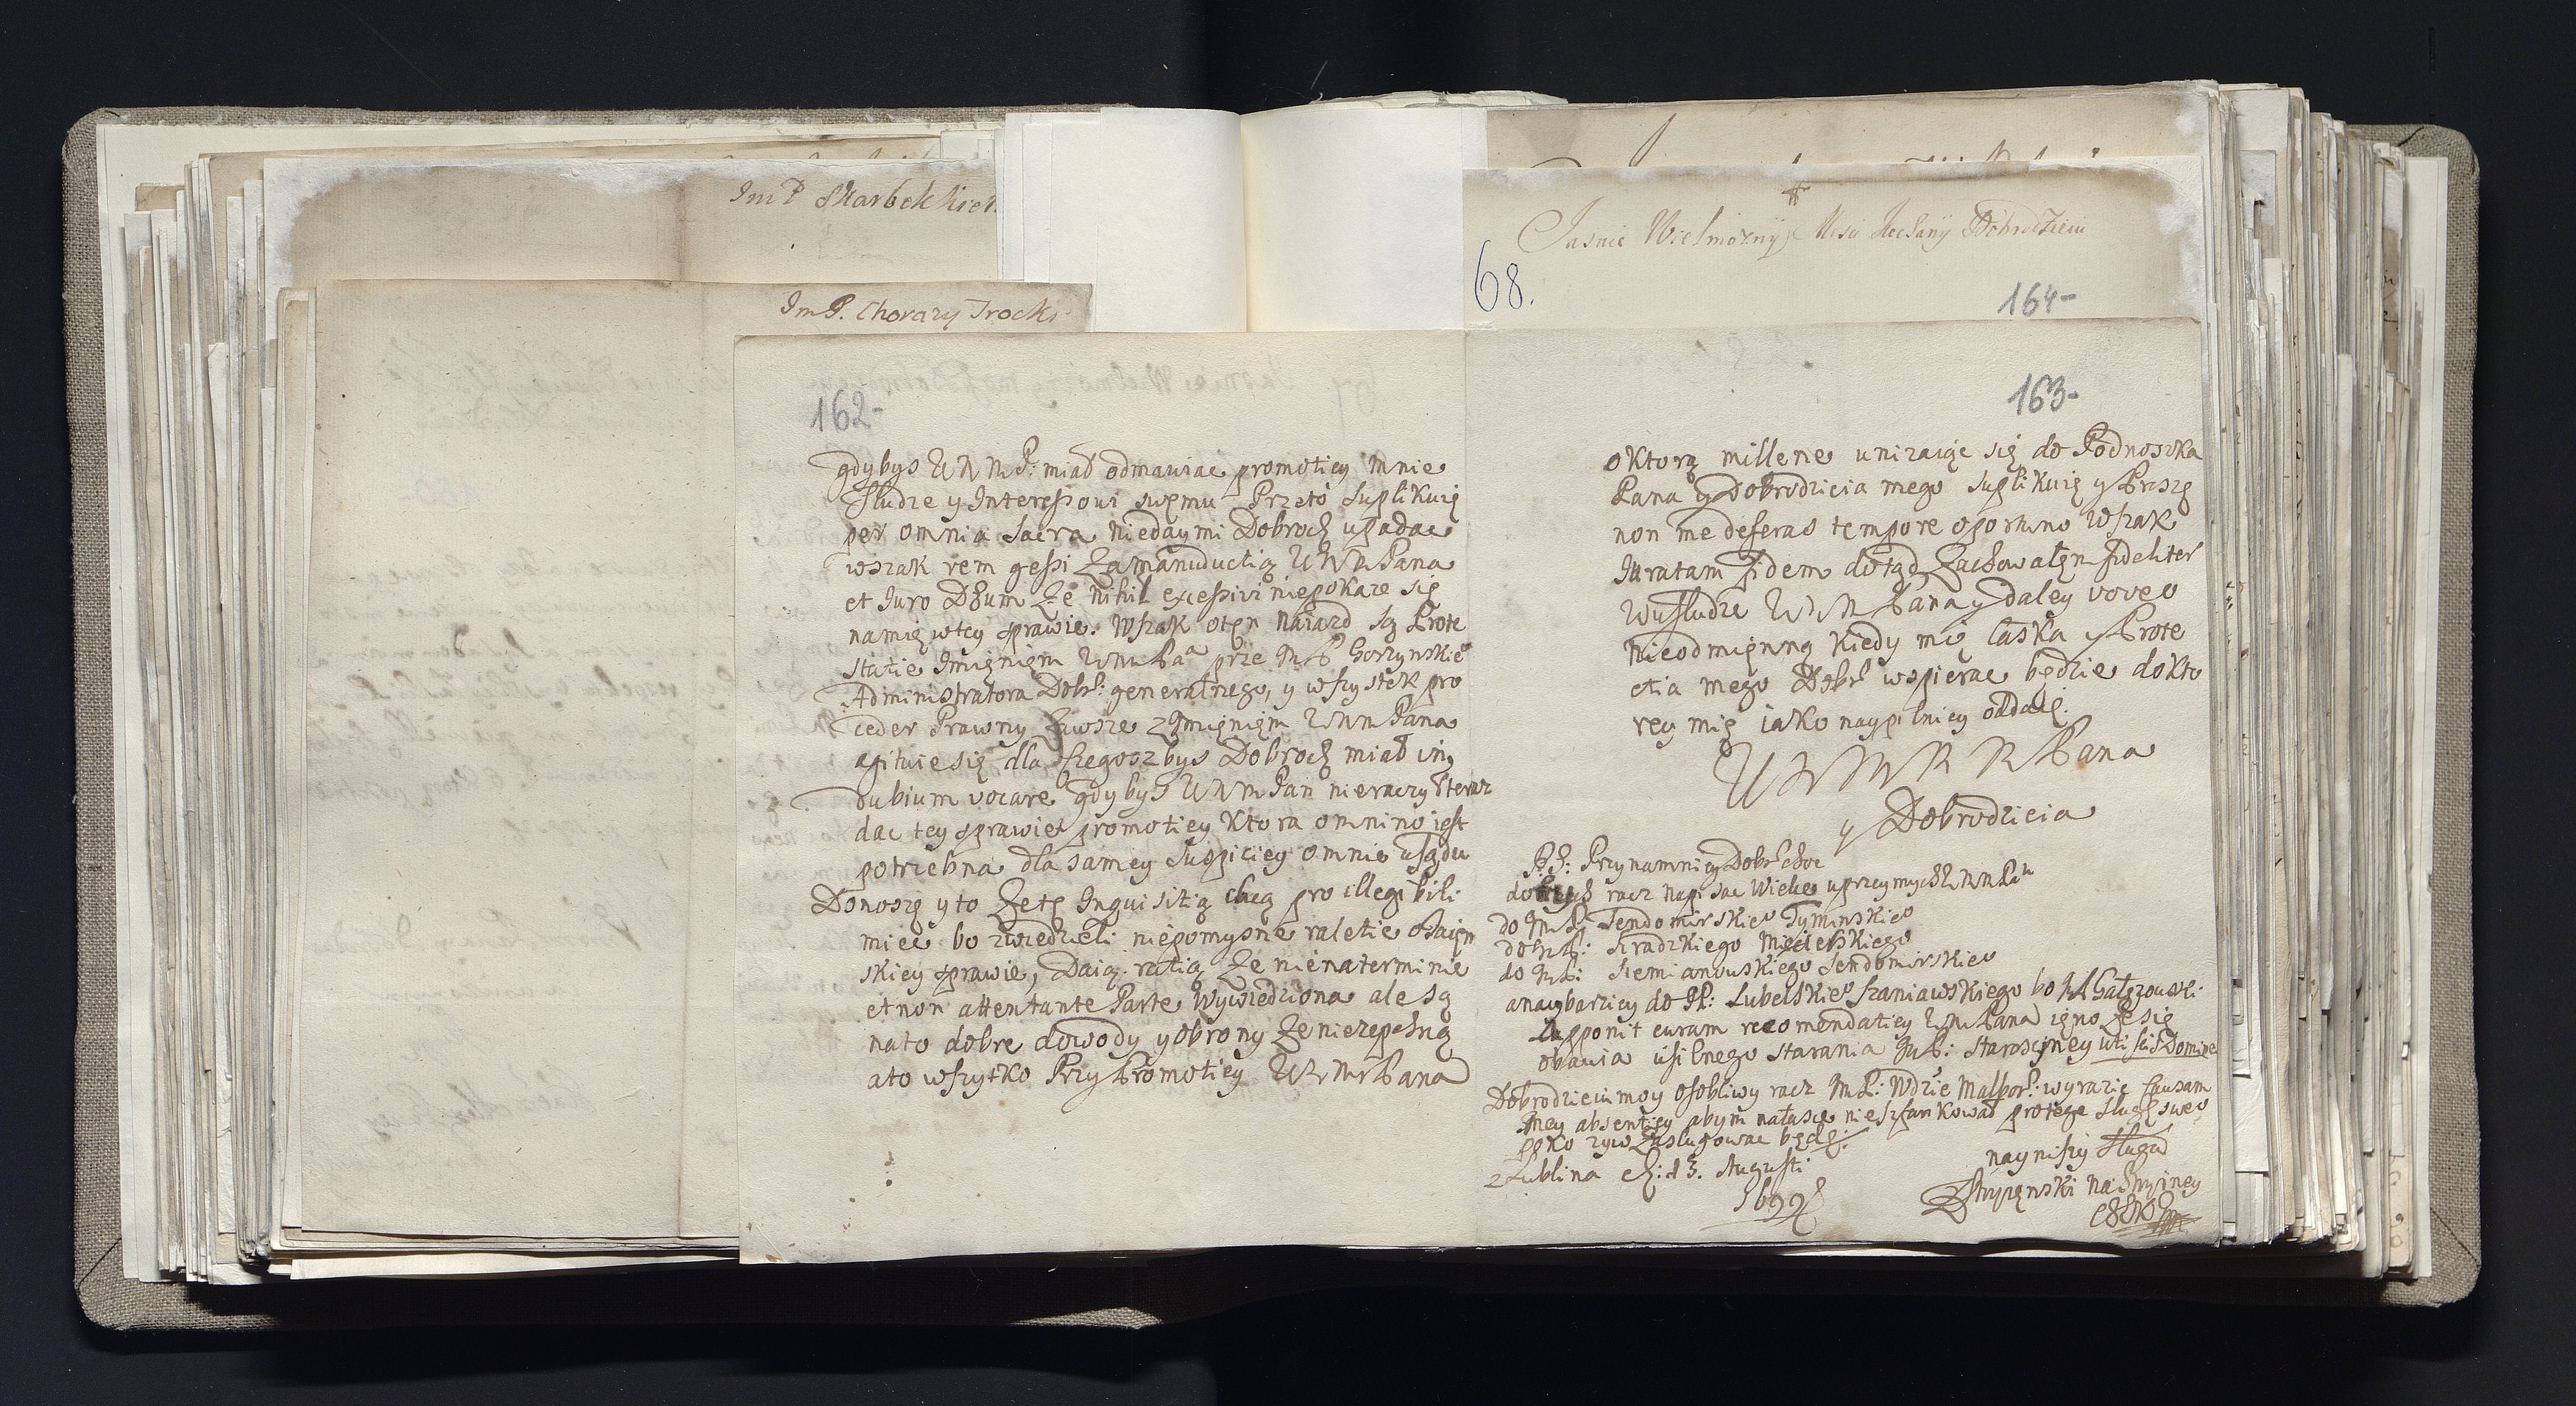 ImP Skarbek Kier.
ImP. Chorazy Trocki
Jasnie Wielmozny Dobrodzieiu
68.
164-
162-
gdybys WWMP: miał odmawiac promotiey mnie
Słudze y Interessowi swemu Przeto suplikuię
per omnia sacra niedaymi Dobrodz upadac
wszak rem gessi za manuductią WWMPana
et Juro Deum Ze nihil excessivi niepokaze się
namię wtey sprawie. Wszak oten naiazd są Prote
statie Imięniem WMPaa prze ImP Gorzynskieo
Administratora Dobr: generalnego, y wszystek pro
ceder Prawny zawsze z Imięnięm WMMPana
agituie się dla czegoszbys Dobrodz miał in
dubium vocare gdybys WWMPan nieraczył teraz
dac tey sprawie promotiey ktora omnino iest
potrzebna dla samey suspiciey omnie usądu
Donoszę y to Zetę Inquisitią chcą pro illegibili
miec bo zwiedzieli niepomysne raletie
skiey sprawie, Daią ratią Ze nienaterminie
et non attentante Parte Wywiedziona ale są
nato dobre dowody y obrony Ze niezepchną
ato wszytko Przy Promotiey WWMPana
163-
oktorą millene unizaiąc się do Podnoszka
Pana y Dobrodzieia mego suplikuię y Proszę
non me deseras tempore oportuno wszak
Juratam fidem dotąd Zachowałęm fideliter
wusłudze WWMPana y daley voveo
nieodmięnną kiedy mię łaska y Prote
ctia mego Dobr wspierac będzie dokto
rey mię iako naypilniey oddaię.
WWMMMPana
y Dobrodzieia
P.S: Przynamniey Dobr
racz napisac Wielce uprzeymych WMPan
do ImP: Sendomirskieo Tyminskieo
do ImP: Siradzkiego Męcielskiego
do ImP: Siemianowskiego Sendomirskieo
anaybarziey do IP: Lubelskieo Szaniawskiego bo Gałęzowski
supponit curam recomendatiey WMPana
obawia usilnego starania ImP: Starosciney uti scis Domine
Dobrodzieiu moy osobliwy racz ImP: Wdzie Malbor: wyrazic causam
mey absentiey abym nałasce nieszfankował protege sługę sweo
poko zyw Zasługowac będę.
z Lublina d: 13. Augusti
1699
naynizszy sługa
Strypęnski